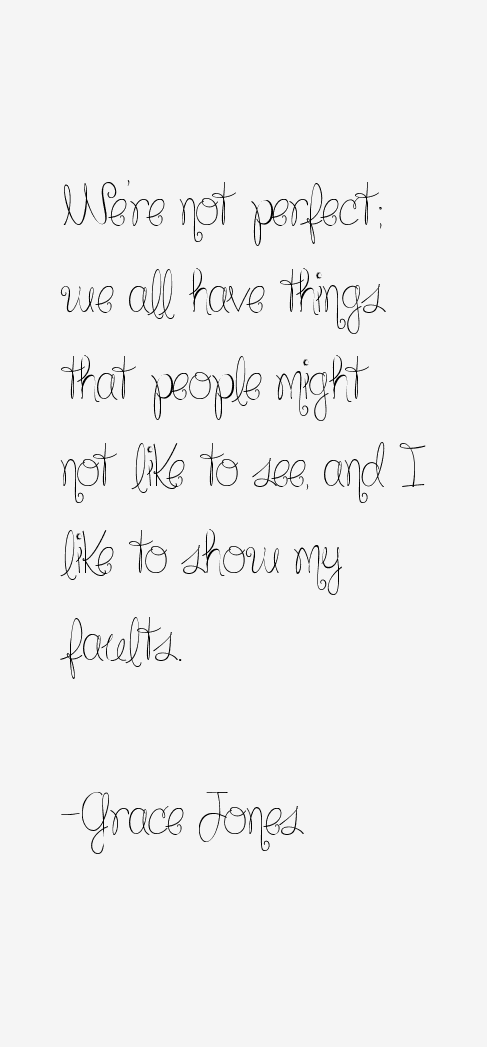 We're not perfect;
we all have things
that people might
not like to see, and I
like to show my
faults.
-Grace Jones